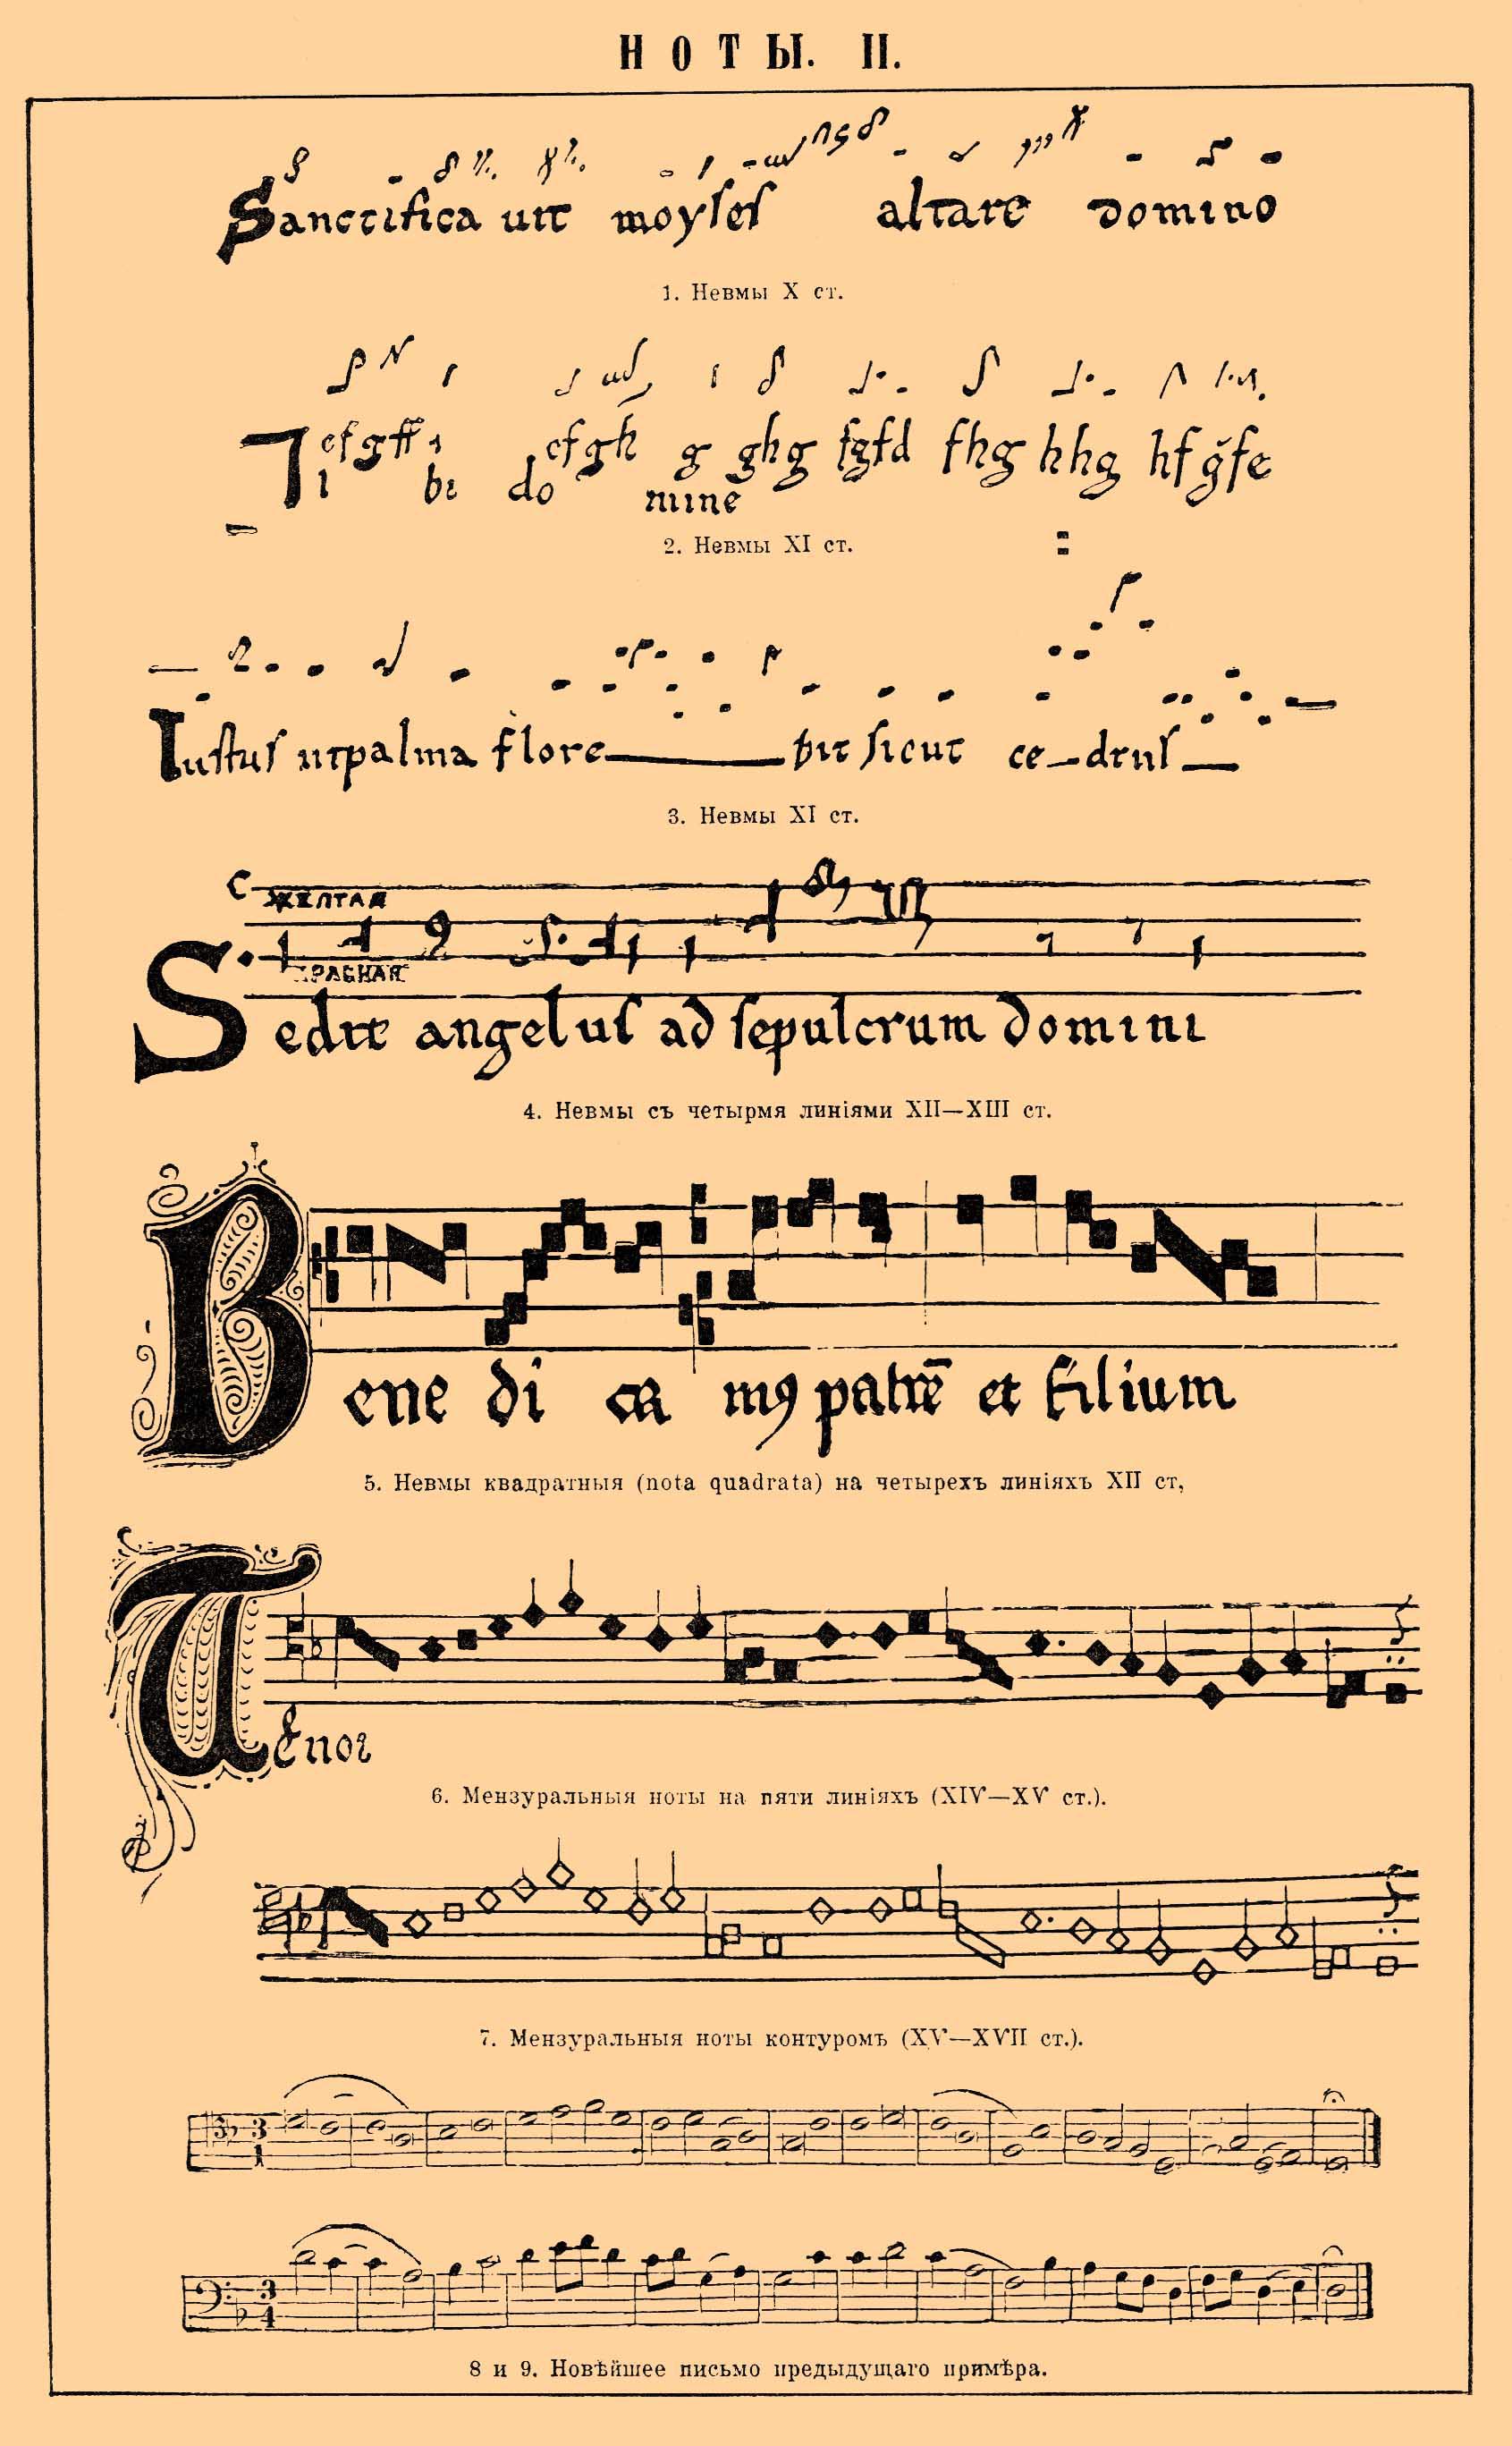 НОТЫ. II.
Sanctifica uit moyſeſ altare domino
1. Невмы X ст.
efgff
efgh g ghg fgfd fhg hhg hfgfe
Ti bi do mine
2. Невмы XI ст.
Iuſtuſ utpalma flore bit ſicut ce-druſ
3. Невмы XI ст.
C
ЖЕЛТАЯ
КРАСНАЯ
Sedit angeluſ ad ſepulcrum domini
4. Невмы съ четырмя линіями XII—XIII ст.
Bene di ca mꝰ patrē et filium
5. Невмы квадратныя (nota quadrata) на четырехъ линіяхъ XII ст,
Tenor
6. Мензуральныя ноты на пяти линіяхъ (XIV—XV ст.).
7. Мензуральныя ноты контуромъ (XV—XVII ст.).
3
1
3
4
8 и 9. Новѣйшее письмо предыдущаго примѣра.